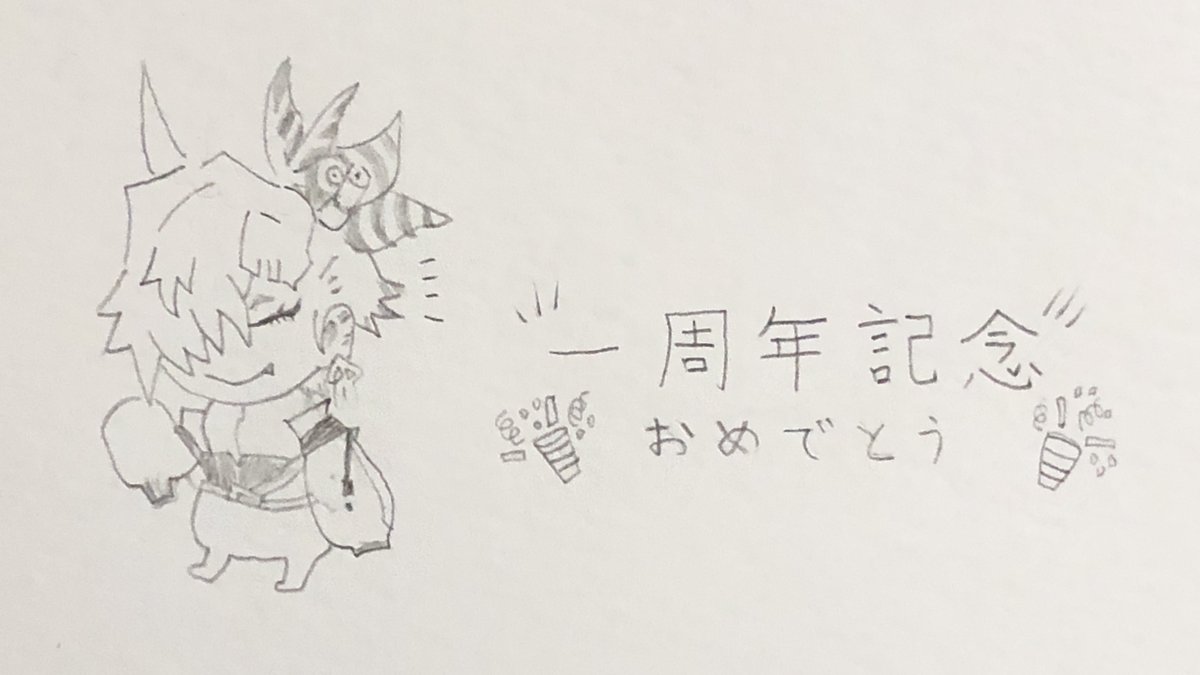 一周年記念
おめでとう